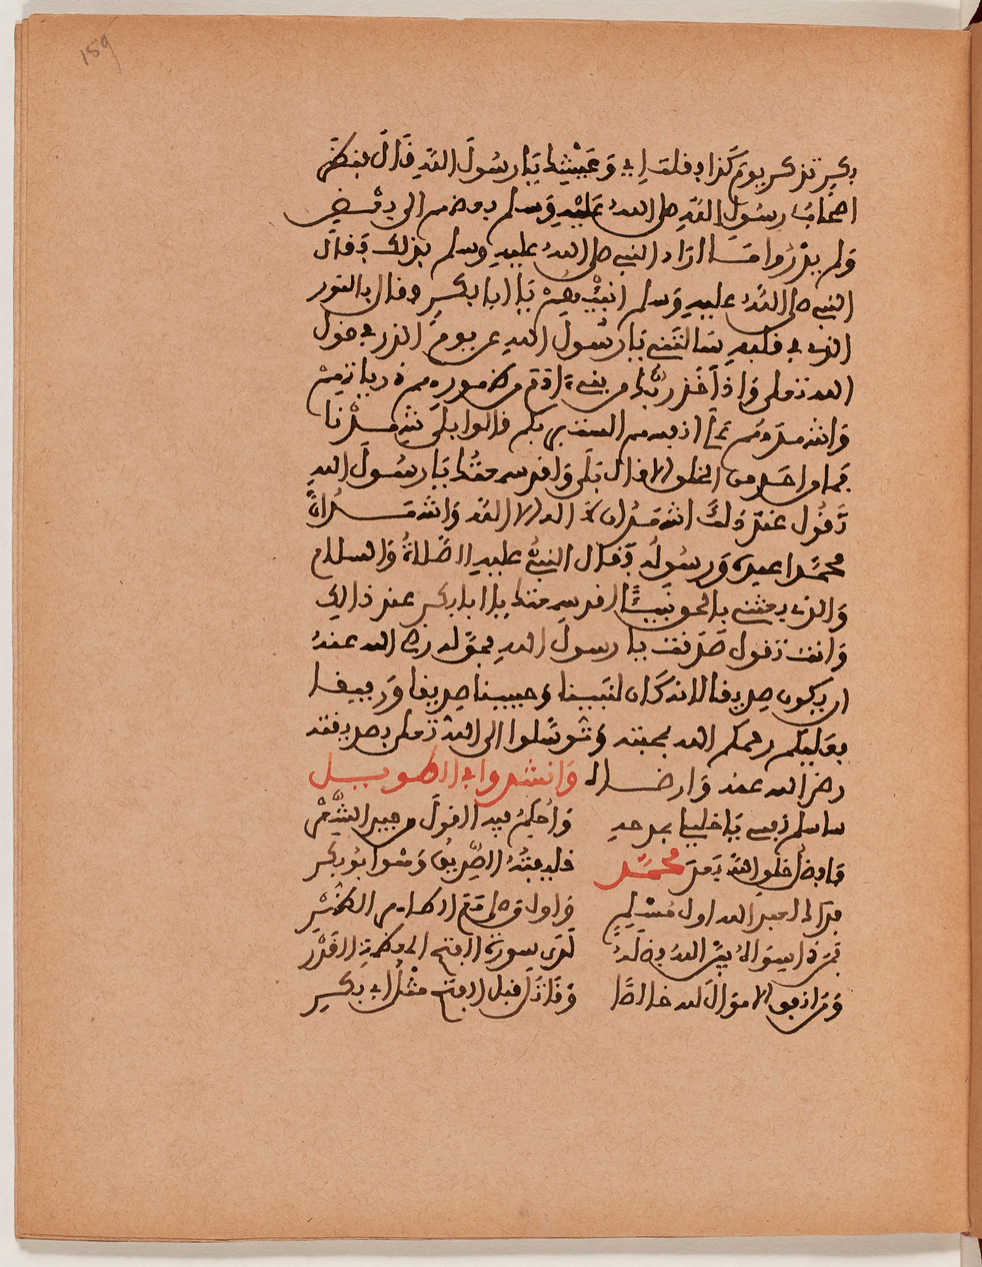 159
بكر تذكر يوم كذا فلت اي وعيشك يا رسول الله قال فنظر
اصحاب رسول الله صلى الله عليه وسلم بعضهم الى بعض
ولم يدروا ما اراد النبي صلى الله عليه وسلم بذلك فقال
النبي صلى الله عليه وسلم يا ابا بكر وقال بالنور
الذي في قلبه سالتني يا رسول الله عن يوم الذر في قول
الله تعلى واذ اخذ ربك من بني ادم من ظهورهم ذرياتهم
واشهدهم على انفسهم الست بربكم قالوا بلى شهدنا
فما واحد من الخلق الا قال بلى ولقد سمعتك يا رسول الله
تقول عند ذلك اشهد ان لا اله الا الله واشهد ان
محمدا عبده ورسوله فقال النبي عليه الصلاة والسلام
والذي بعثني بالحق نبيا لقد سمعتك يا ابا بكر عند ذالك
وانت تقول صدقت يا رسول الله بحق له رضي الله عنه
ان يكون صديقا لانه كان لنبينا وحبيبنا صديقا ورفيقا
فعليكم رحمكم الله بمحبته وتوسلوا الى الله تعلى بصديقته
رضي الله عنه وارضاه وانشدوا في الطويل
يا خليا واحكم فيه القول من جيد الشعر
فافضل خلق الله بعد محمد خليفته الصديق وهو ابو بكر
اول مسلم واول من الكفر
الله فضله لدى سورة الفتح القدر
ومن انفق الاموال لله خالصا وقاتل قبل الفتح مثل ابي بكر